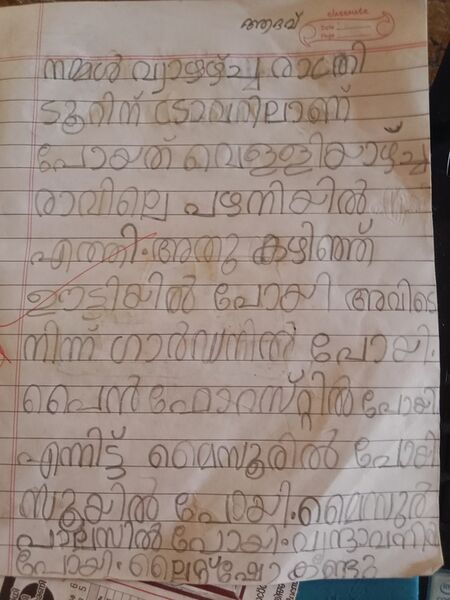 ആദവ്
classmate
Date
Page
നമ്മൾ വ്യാഴഴ്ച്ച രാത്രി
ടൂറിന് ട്രാവലറിലാണ്
പോയത് വെള്ളിയാഴ്ച്ച
രാവിലെ പഴനിയിൽ
എത്തി. അതു കഴിഞ്ഞ്
ഊട്ടിയിൽ പോയി അവിടെ
നിന്ന് ഗാർഡനിൽ പോയി.
പൈൻ ഫോറസ്റ്റിൽ പോയി
എന്നിട്ട് മൈസൂരിൽ പോയി
സൂയിൽ പോയി. മൈസൂർ
പാലസിൽ പോയി. വൃന്ദാവനിൽ
പോയി. ലൈറ്റ്ഷോ കണ്ടു